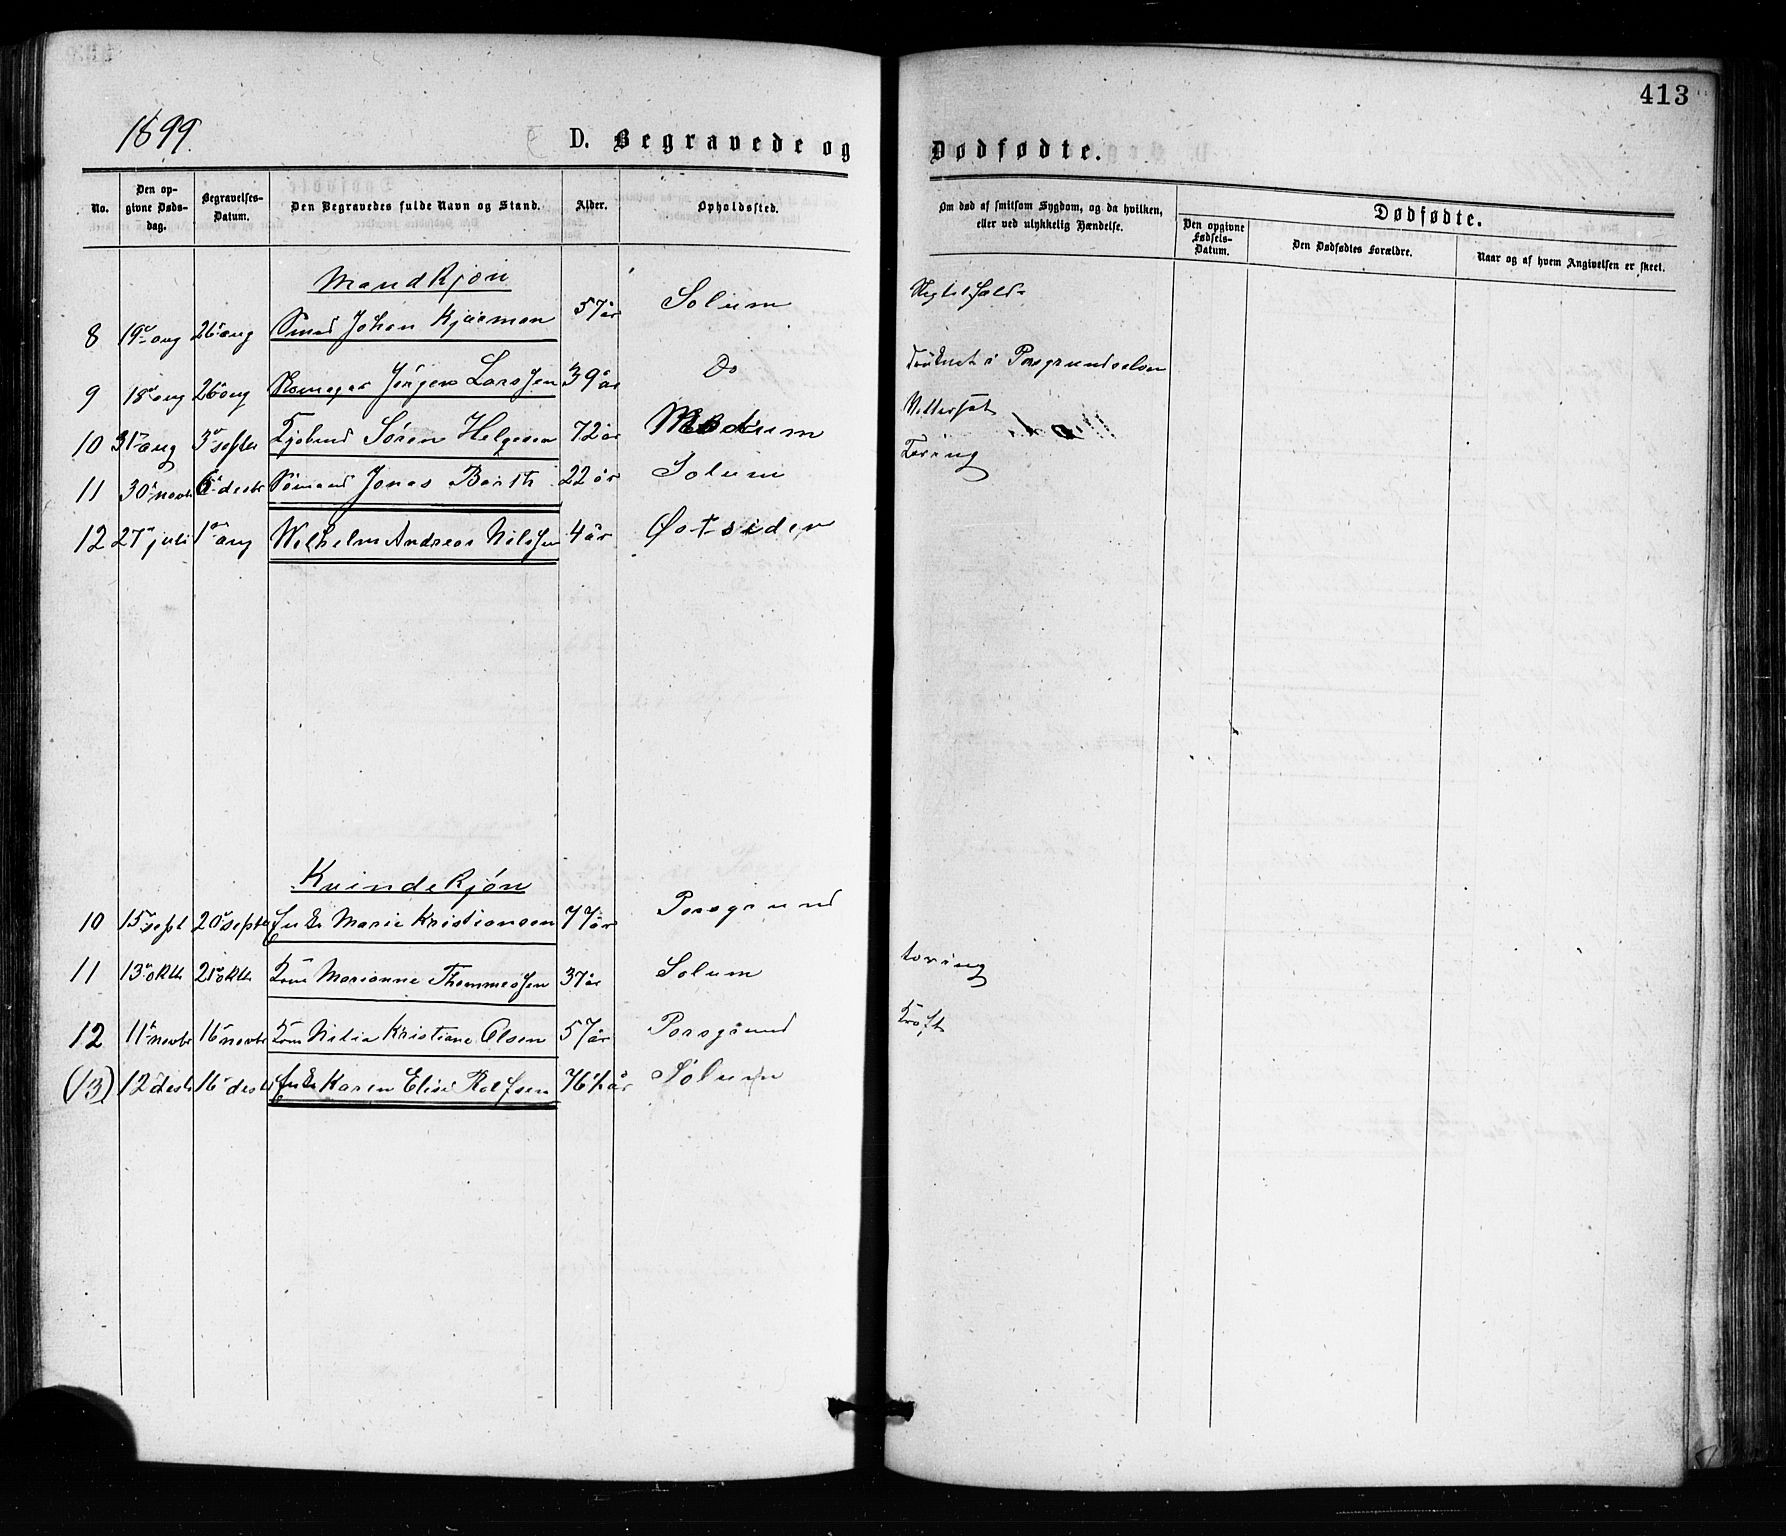 413
1899.
D. Begravede og Dødfødte.
No. Den opgivne Døds-dag. Begravelses-Datum. Den Begravedes fulde Navn og Stand. Alder. Opholdssted. Om død af smitsom Sygdom, og da hvilken, eller ved ulykkelig Hændelse. Dødfødte.
Den opgivne Fødsels-Datum. Den Dødfødtes Forældre. Naar og af hvem Angivelsen er skeet.
Mandkjøn
8 19 aug 26 aug Smed Johan Kjærman 57 år Solum
9 18 aug 26 aug Jørgen Larssen 39 år Do i Porsgrundselven
10 31 aug 3 septbr Søren Helgesen 72 år
11 30 novbr 6 desbr Sømand Jonas Barth 22 år Solum Tæring
12 27 juli 1 aug Wilhelm Andreas Nilssen 4 år Østsiden
Kvindekjøn
10 15 sept 20 septbr Enke Marie Kristiansen 77 år Porsgrund
11 13 oktb 21 oktb Kone Marianne Thommessen 37 år Solum tæring
12 11 novbr 16 novbr Kone Kristiane Olsen 57 år Porsgrund Kræft
(13) 12 desb 16 desb Enke Karen Elise Rolfsen 76½ år Solum